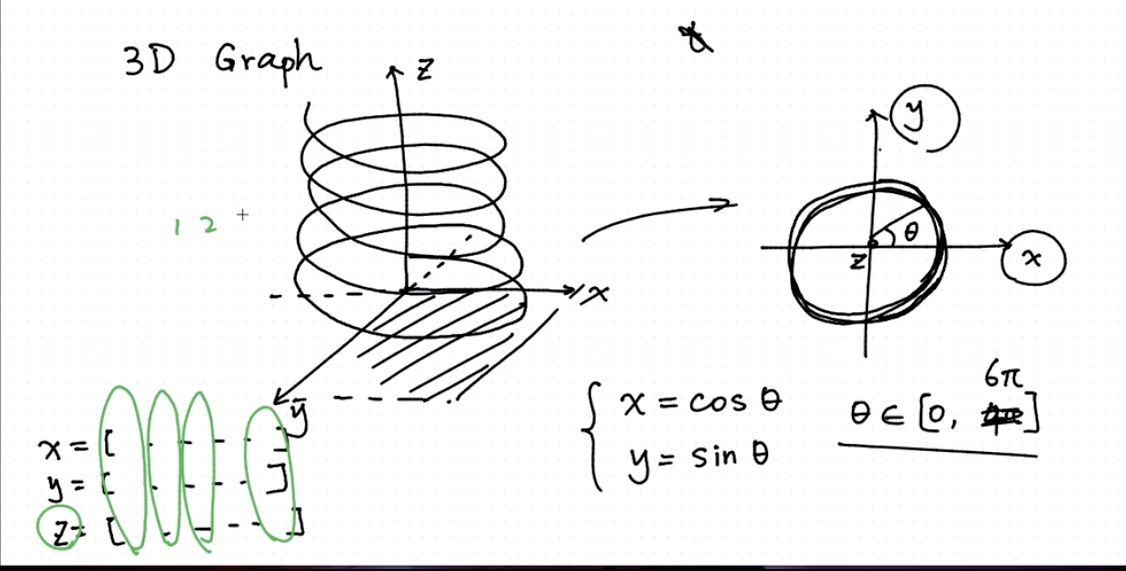 3D Graph
z
x
y
1 2
y
x
z θ
x = [ - - - - ]
y = [ - - - - ]
z = [ - - - - ]
x = cos θ
y = sin θ
6π
θ ∈ [0, ]